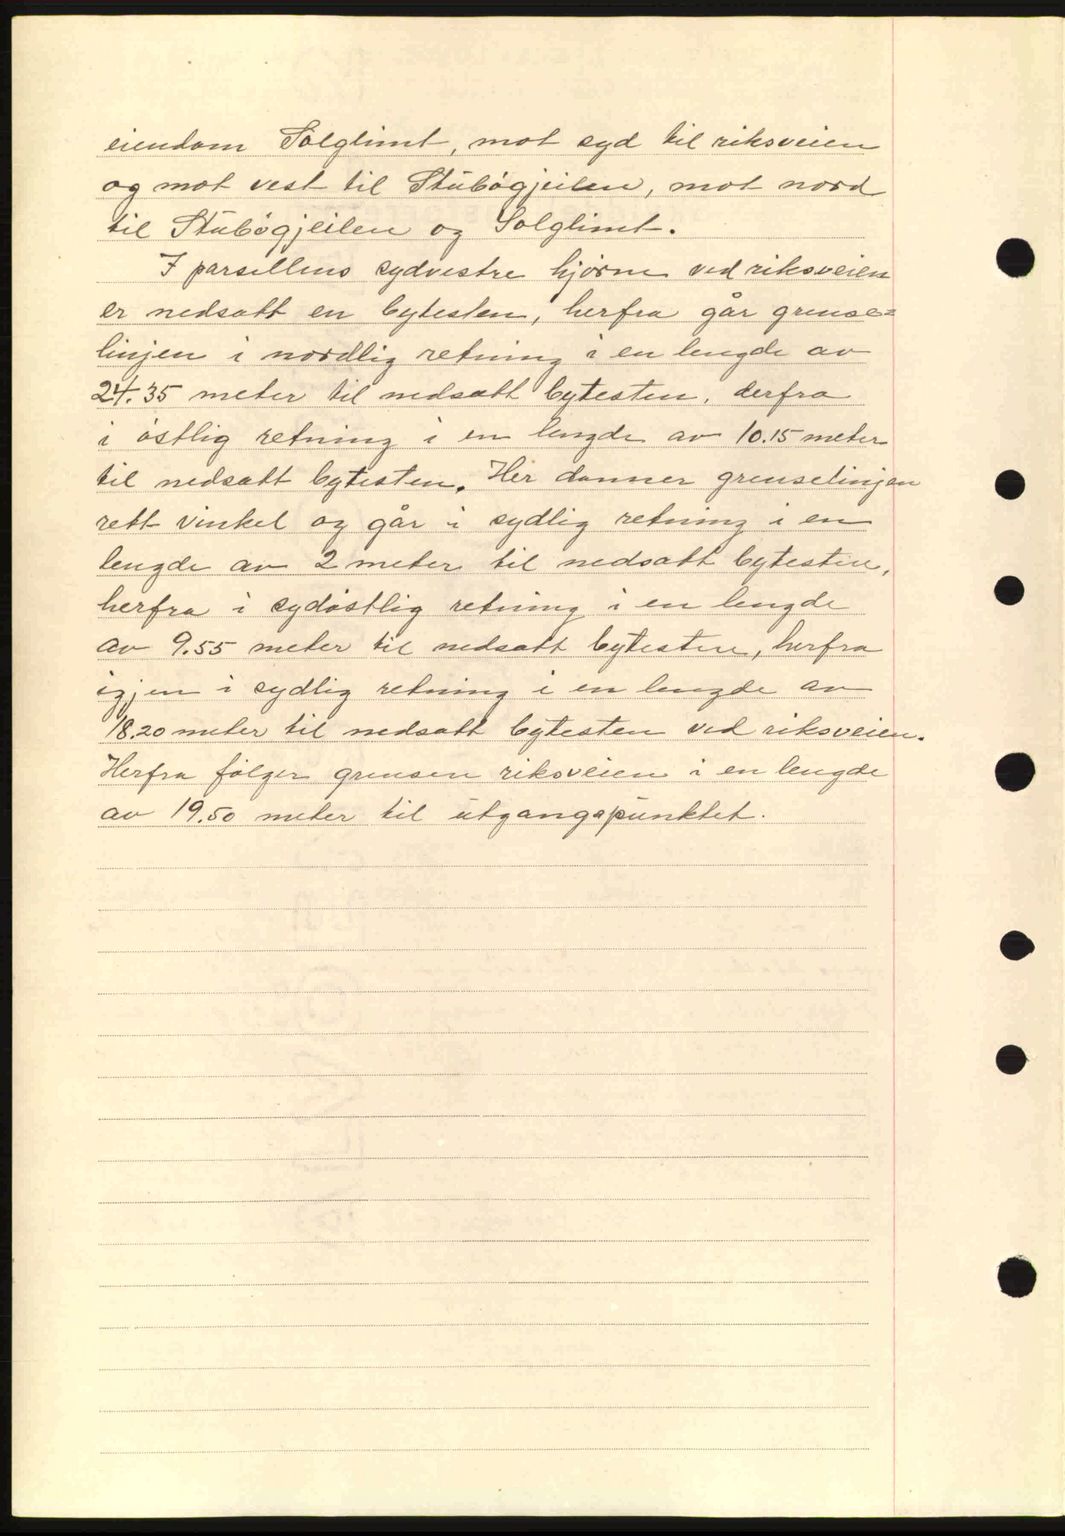 eiendom Solglimt, mot syd til riksveien
og mot vest til Stubøgjeilen, mot nord
til Stubøgjeilen og Solglimt.
I parsellens sydvestre hjørne ved riksveien
er nedsatt en bytesten, herfra går grense=
linjen i nordlig retning i en lengde av
24.35 meter til nedsatt bytesten, derfra
i østlig retning i en lengde av 10.15 meter
til nedsatt bytesten. Her danner grenselinjen
rett vinkel og går i sydlig retning i en
lengde av 2 meter til nedsatt bytesten,
herfra i sydøstlig retning i en lengde
av 9.55 meter til nedsatt bytesten, herfra
igjen i sydlig retning i en lengde av
18.20 meter til nedsatt bytesten ved riksveien.
Herfra følger grensen riksveien i en lengde
av 19.50 meter til utgangspunktet.